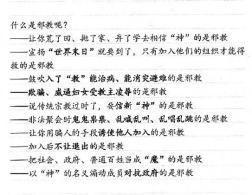 什么是邪教呢？
——让你荒了田、抛了家、弃了学去相信“神”的是邪教
——宣扬“世界末日”就要到了，只有加入他们的组织才能得
救的是邪教
——鼓吹入了“教”能治病、能消灾避难的是邪教
——欺骗、威逼妇女受教主凌辱的是邪教
——说传统宗教过时了，要信新“神”的是邪教
——非法聚会时鬼鬼祟祟、乱喊乱叫、乱唱乱跳的是邪教
——让你用骗人的手段诱使他人加入的是邪教
——加入后不让退出的是邪教
——把社会、政府、普通百姓当成“魔”的是邪教
——以“神”的名义煽动成员对抗政府的是邪教